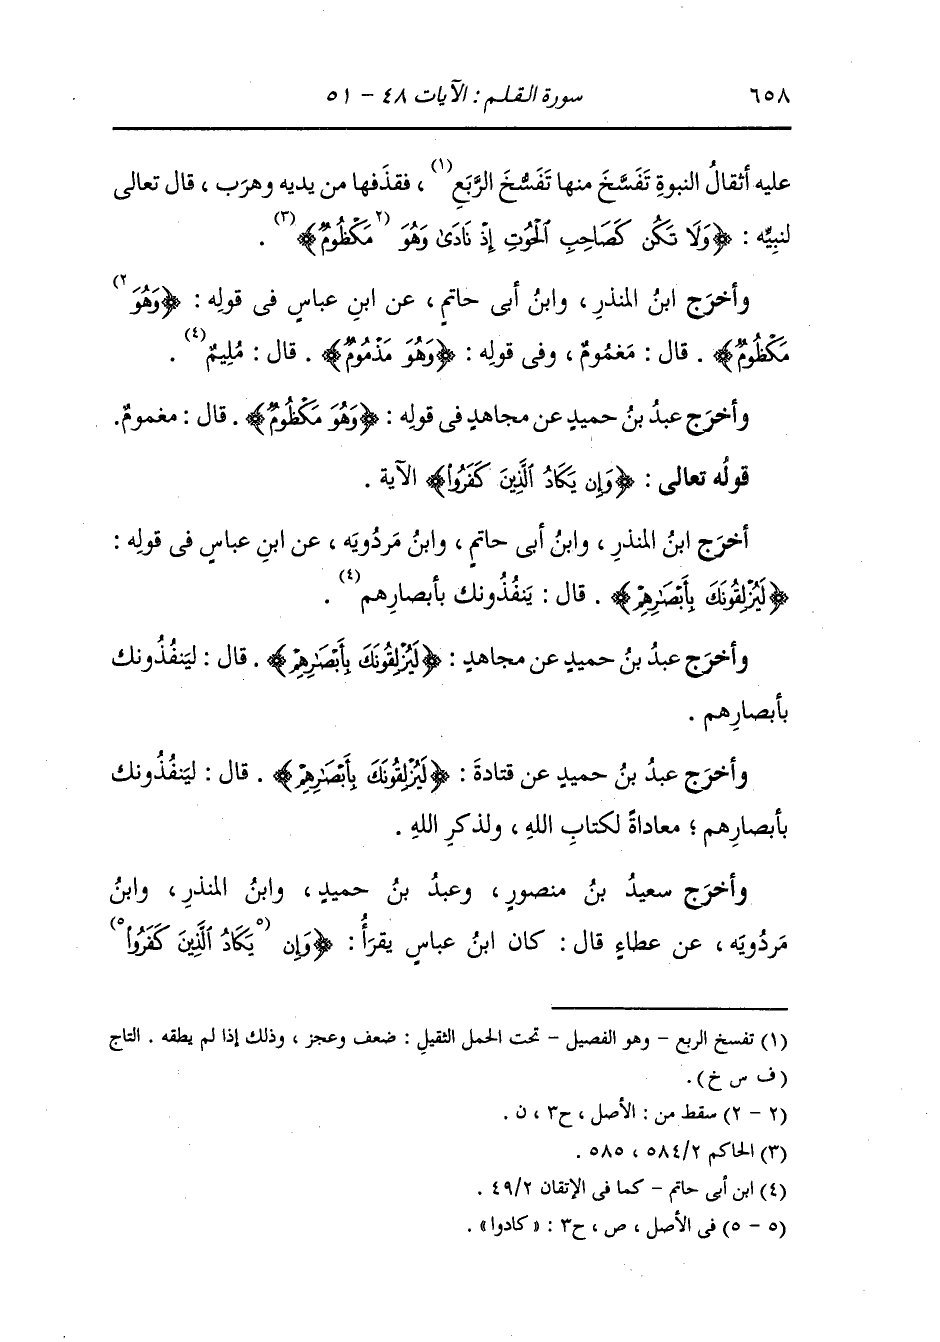 ٦٥٨ سورة القلم : الآيات ٤٨ - ٥١
عليه أثقالُ النبوةِ تَفَسَّخَ منها تَفَسُّخَ الرَّبَعِ(١) ، فقذَفها من يديه وهرَب ، قال تعالى
لنبيِّه : ﴿وَلَا تَكُن كَصَاحِبِ ٱلْحُوتِ إِذْ نَادَىٰ وَهُوَ (٢مَكْظُومٌ﴾(٣) .
وأخرَج ابنُ المنذرِ ، وابنُ أبى حاتمٍ ، عن ابنِ عباسٍ فى قولِه : ﴿وَهُوَ ٢)
مَكْظُومٌ﴾ . قال : مَغمُومٌ ، وفى قولِه : ﴿وَهُوَ مَذْمُومٌ﴾ . قال : مُلِيمٌ(٤) .
وأخرَج عبدُ بنُ حميدٍ عن مجاهدٍ فى قولِه : ﴿وَهُوَ مَكْظُومٌ﴾ . قال : مغمومٌ.
قولُه تعالى : ﴿وَإِن يَكَادُ ٱلَّذِينَ كَفَرُوا۟﴾ الآية .
أخرَج ابنُ المنذرِ ، وابنُ أبى حاتمٍ ، وابنُ مَردُويَه ، عن ابنِ عباسٍ فى قولِه :
﴿لَيُزْلِقُونَكَ بِأَبْصَـٰرِهِمْ﴾ . قال : يَنفُذُونك بأبصارِهم(٤) .
وأخرَج عبدُ بنُ حميدٍ عن مجاهدٍ : ﴿لَيُزْلِقُونَكَ بِأَبْصَـٰرِهِمْ﴾ . قال : ليَنفُذُونك
بأبصارِهم .
وأخرَج عبدُ بنُ حميدٍ عن قتادةَ : ﴿لَيُزْلِقُونَكَ بِأَبْصَـٰرِهِمْ﴾ . قال : ليَنفُذُونك
بأبصارِهم ؛ معاداةً لكتابِ اللهِ ، ولذكرِ اللهِ .
وأخرَج سعيدُ بنُ منصورٍ ، وعبدُ بنُ حميدٍ ، وابنُ المنذرِ ، وابنُ
مَردُويَه ، عن عطاءٍ قال : كان ابنُ عباسٍ يقرَأُ : ﴿وَإِن (٥يَكَادُ ٱلَّذِينَ كَفَرُوا۟٥)
(١) تفسخ الربع - وهو الفصيل - تحت الحمل الثقيل : ضعف وعجز ، وذلك إذا لم يطقه . التاج
(ف س خ).
(٢ - ٢) سقط من : الأصل ، ح٣ ، ن .
(٣) الحاكم ٥٨٤/٢ ، ٥٨٥ .
(٤) ابن أبى حاتم - كما فى الإتقان ٤٩/٢ .
(٥ - ٥) فى الأصل ، ص ، ح٣ : « كادوا» .